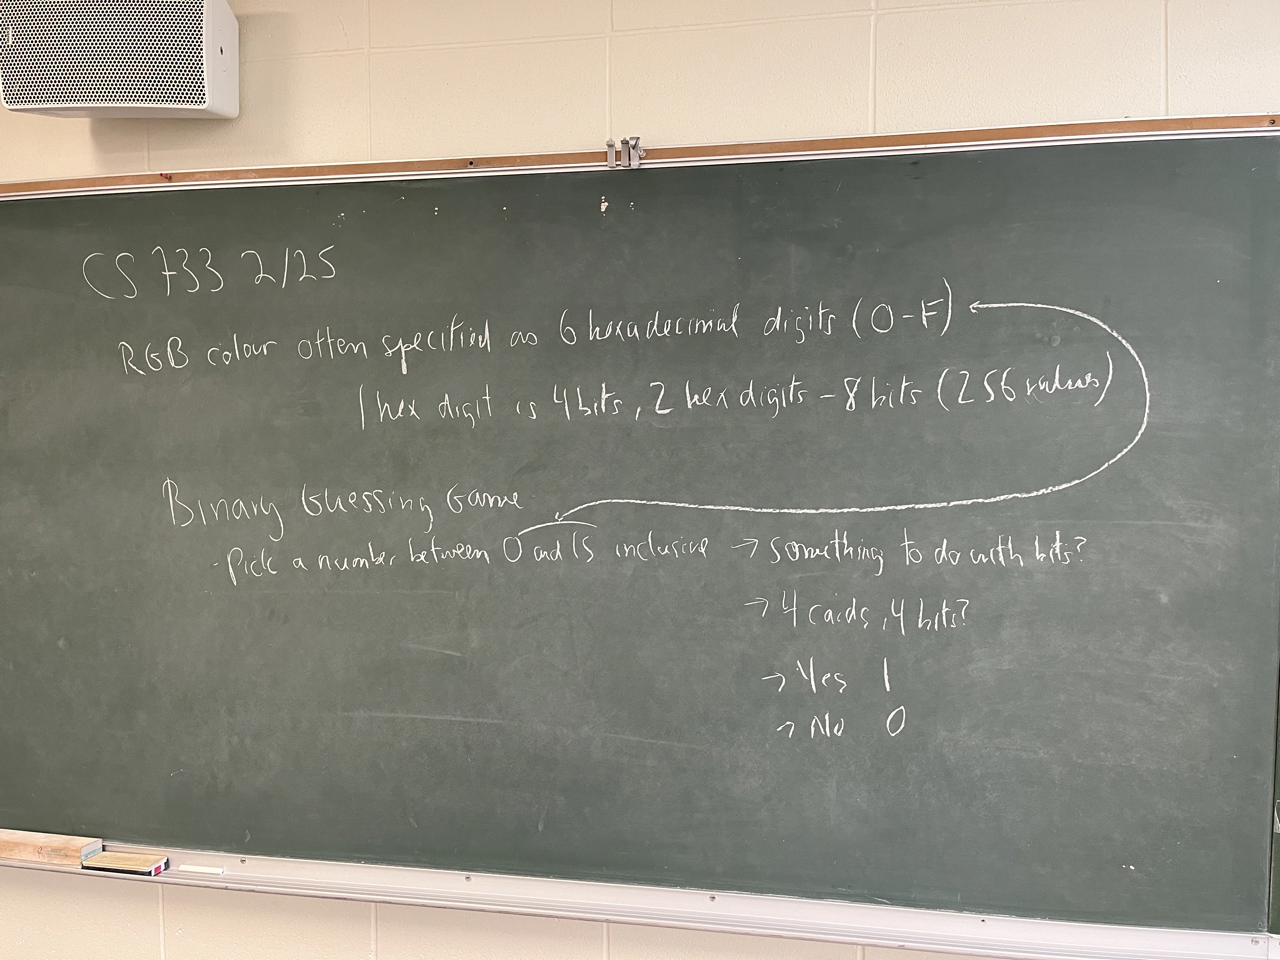 CS 733 2/25
RGB colour often specified as 6 hexadecimal digits (0-F)
1 hex digit is 4 bits, 2 hex digits - 8 bits (256 values)
Binary Guessing Game
- Pick a number between 0 and 15 inclusive → something to do with bits?
→ 4 cards, 4 bits?
→ Yes 1
→ No 0